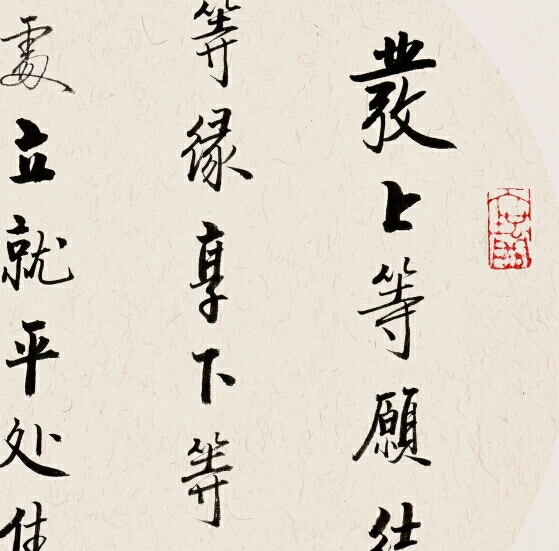 發上等願
等緣享下等
處立就平处